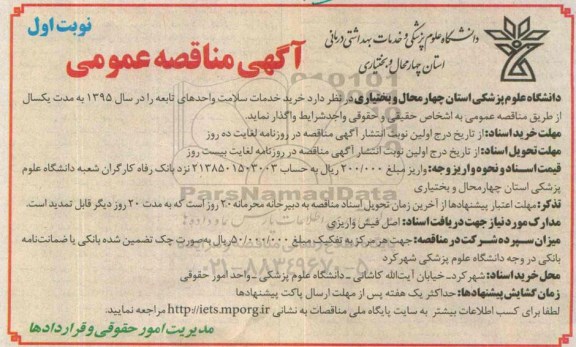 نوبت اول
دانشگاه علوم پزشکی و خدمات بهداشتی درمانی
استان چهارمحال و بختیاری
آگهی مناقصه عمومی
دانشگاه علوم پزشکی استان چهارمحال و بختیاری در نظر دارد خرید خدمات سلامت واحدهای تابعه را در سال ۱۳۹۵ به مدت یکسال
از طریق مناقصه عمومی به اشخاص حقیقی و حقوقی واجدشرایط واگذار نماید.
مهلت خرید اسناد: از تاریخ درج اولین نوبت انتشار آگهی مناقصه در روزنامه لغایت ده روز
مهلت تحویل اسناد: از تاریخ درج اولین نوبت انتشار آگهی مناقصه در روزنامه لغایت بیست روز
قیمت اسناد و نحوه واریز وجه: واریز مبلغ ۲۰۰/۰۰۰ ریال به حساب ۲۱۳۸۵۰۱۵۰۳۰۰۳ نزد بانک رفاه کارگران شعبه دانشگاه علوم
پزشکی استان چهارمحال و بختیاری
تذکر: مهلت اعتبار پیشنهادها از آخرین زمان تحویل اسناد مناقصه به دبیرخانه محرمانه ۲۰ روز است که به مدت ۲۰ روز دیگر قابل تمدید است.
مدارک مورد نیاز جهت دریافت اسناد: اصل فیش واریزی
میزان سپرده شرکت در مناقصه: جهت هر مرکز به تفکیک مبلغ ۵۰/۰۰۰/۰۰۰ ریال به صورت چک تضمین شده بانکی یا ضمانت‌نامه
بانکی در وجه دانشگاه علوم پزشکی شهرکرد
محل خرید اسناد: شهرکرد_خیابان آیت‌الله کاشانی _دانشگاه علوم پزشکی _واحد امور حقوقی
زمان گشایش پیشنهادها: حداکثر یک هفته پس از مهلت ارسال پاکت پیشنهادها
لطفا برای کسب اطلاعات بیشتر به سایت پایگاه ملی مناقصات به نشانی http://iets.mporg.ir مراجعه نمایید.
مدیریت امور حقوقی و قراردادها
ParsNamadData
۰۲۱-۸۸۳۴۹۶۷۰-۵